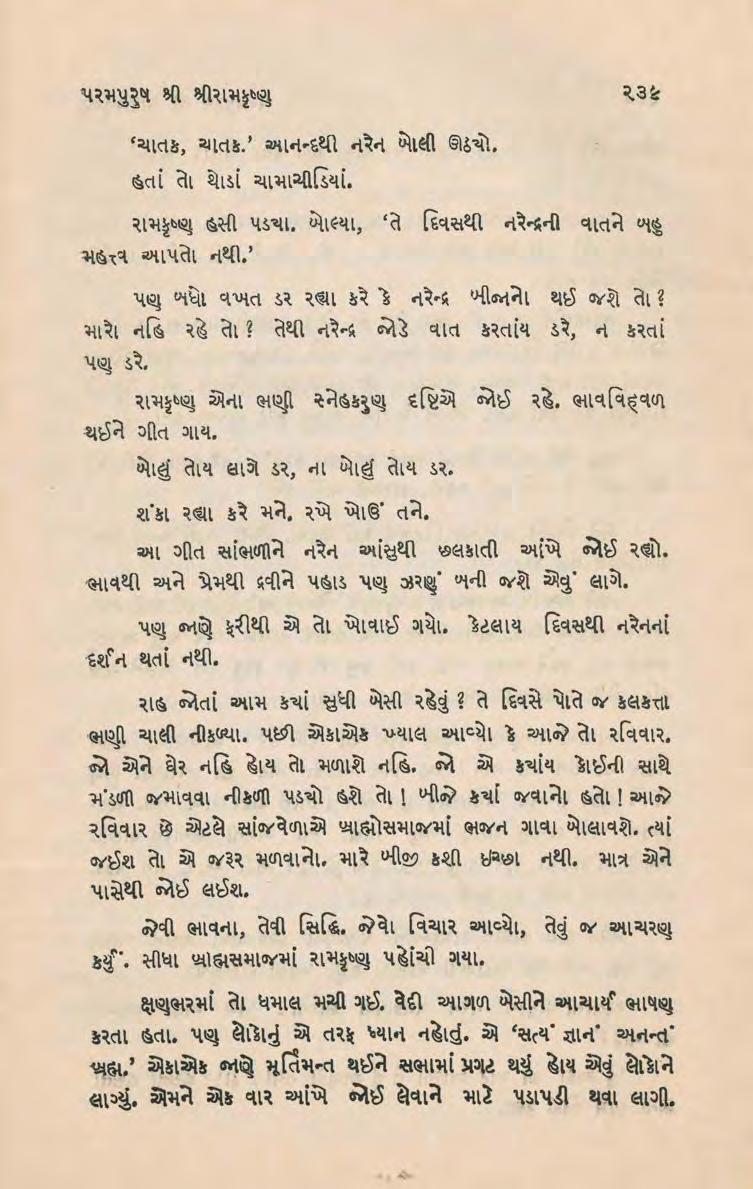 પરમપુરુષ શ્રી શ્રીરામકૃષ્ણ ૨૩૯
‘ચાતક, ચાતક.’ આનન્દથી નરેન બોલી ઊઠયો.
હતાં તો થોડાં ચામાચીડિયાં.
રામકૃષ્ણ હસી પડયા. બોલ્યા, ‘તે દિવસથી નરેન્દ્રની વાતને બહુ
મહત્ત્વ આપતો નથી.’
પણ બધો વખત ડર રહ્યા કરે કે નરેન્દ્ર બીજાનો થઈ જશે તો ?
મારો નહિ રહે તો ? તેથી નરેન્દ્ર જોડે વાત કરતાંય ડરે, ન કરતાં
પણ ડરે.
રામકૃષ્ણ એના ભણી સ્નેહકરુણ દૃષ્ટિએ જોઈ રહે. ભાવવિહ્વળ
થઈને ગીત ગાય.
બોલું તોય લાગે ડર, ના બોલું તોય ડર.
શંકા રહ્યા કરે મને, રખે ખોઉં તને.
આ ગીત સાંભળીને નરેન આંસુથી છલકાતી આંખે જોઈ રહ્યો.
ભાવથી અને પ્રેમથી દ્રવીને પહાડ પણ ઝરણું બની જશે એવું લાગે.
પણ જાણે ફરીથી એ તો ખોવાઈ ગયો. કેટલાય દિવસથી નરેનનાં
દર્શન થતાં નથી.
રાહ જોતાં આમ કયાં સુધી બેસી રહેવું ? તે દિવસે પોતે જ કલકત્તા
ભણી ચાલી નીકળ્યા. પછી એકાએક ખ્યાલ આવ્યો કે આજે તો રવિવાર.
જો એને ઘેર નહિ હોય તો મળાશે નહિ. જો એ કયાંય કોઈની સાથે
મંડળી જમાવવા નીકળી પડયો હશે તો ! બીજે કયાં જવાનો હતો ! આજે
રવિવાર છે એટલે સાંજવેળાએ બ્રાહ્મોસમાજમાં ભજન ગાવા બોલાવશે. ત્યાં
જઈશ તો એ જરૂર મળવાનો. મારે બીજી કશી ઇચ્છા નથી. માત્ર એને
પાસેથી જોઈ લઈશ.
જેવી ભાવના, તેવી સિદ્ધિ. જેવો વિચાર આવ્યો, તેવું જ આચરણ
કર્યું. સીધા બ્રાહ્મસમાજમાં રામકૃષ્ણ પહોંચી ગયા.
ક્ષણભરમાં તો ધમાલ મચી ગઈ. વેદી આગળ બેસીને આચાર્ય ભાષણ
કરતા હતા. પણ લોકોનું એ તરફ ધ્યાન નહોતું. એ ‘સત્યં જ્ઞાનં અનન્તં
બ્રહ્મ.’ એકાએક જાણે મૂર્તિમન્ત થઈને સભામાં પ્રગટ થયું હોય એવું લોકોને
લાગ્યું. એમને એક વાર આંખે જોઈ લેવાને માટે પડાપડી થવા લાગી.